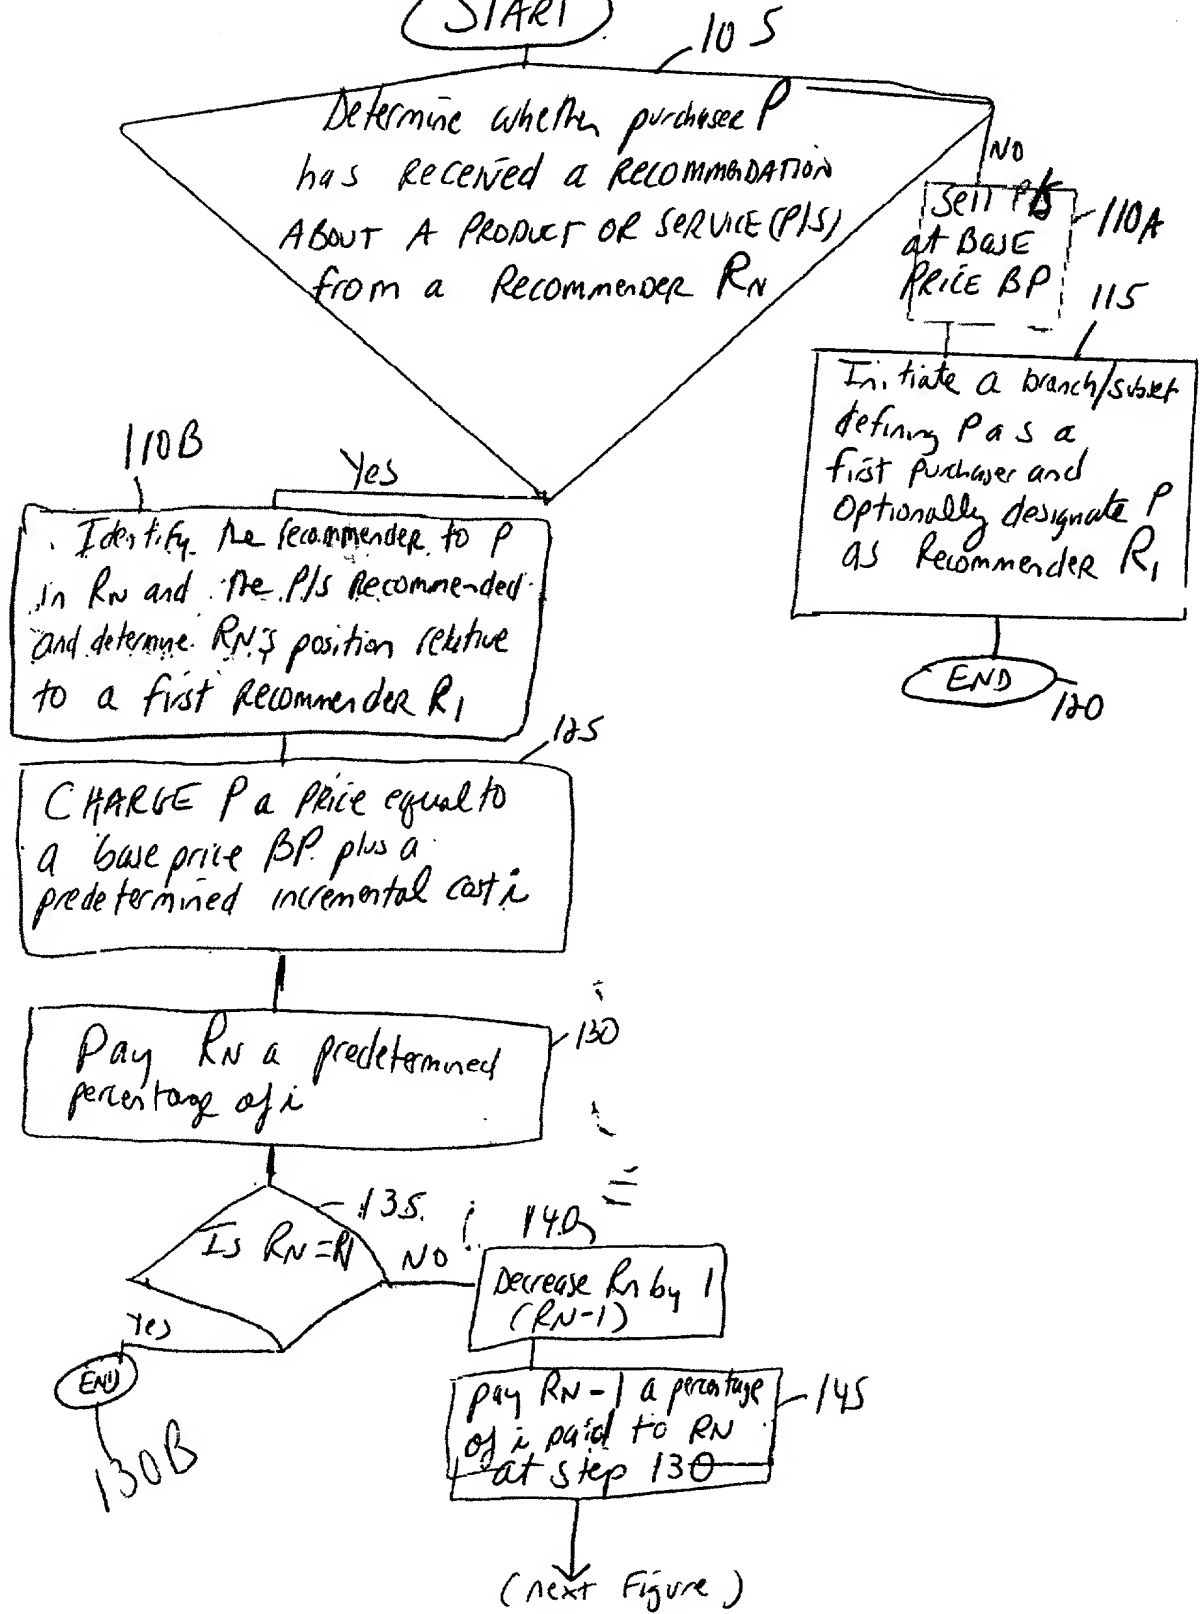 START
105
Determine whether purchaser P
has Received a RECOMMENDATION
ABOUT A PRODUCT OR SERVICE (P/S)
from a Recommender RN
NO
Sell P/S
at BASE
PRICE BP
110A
115
Initiate a branch/subset
defining P as a
first purchaser and
Optionally designate P
as Recommender R1
END
120
110B
Yes
Identify the recommender to P
in RN and the P/S Recommended
and determine RN's position relative
to a first Recommender R1
125
CHARGE P a PRICE equal to
a base price BP plus a
predetermined incremental cost i
130
Pay RN a predetermined
percentage of i
135
Is RN = R1
NO
Yes
END
130B
140
Decrease Rn by 1
(RN-1)
pay RN-1 a percentage
of i paid to RN
at step 130
145
(next Figure)